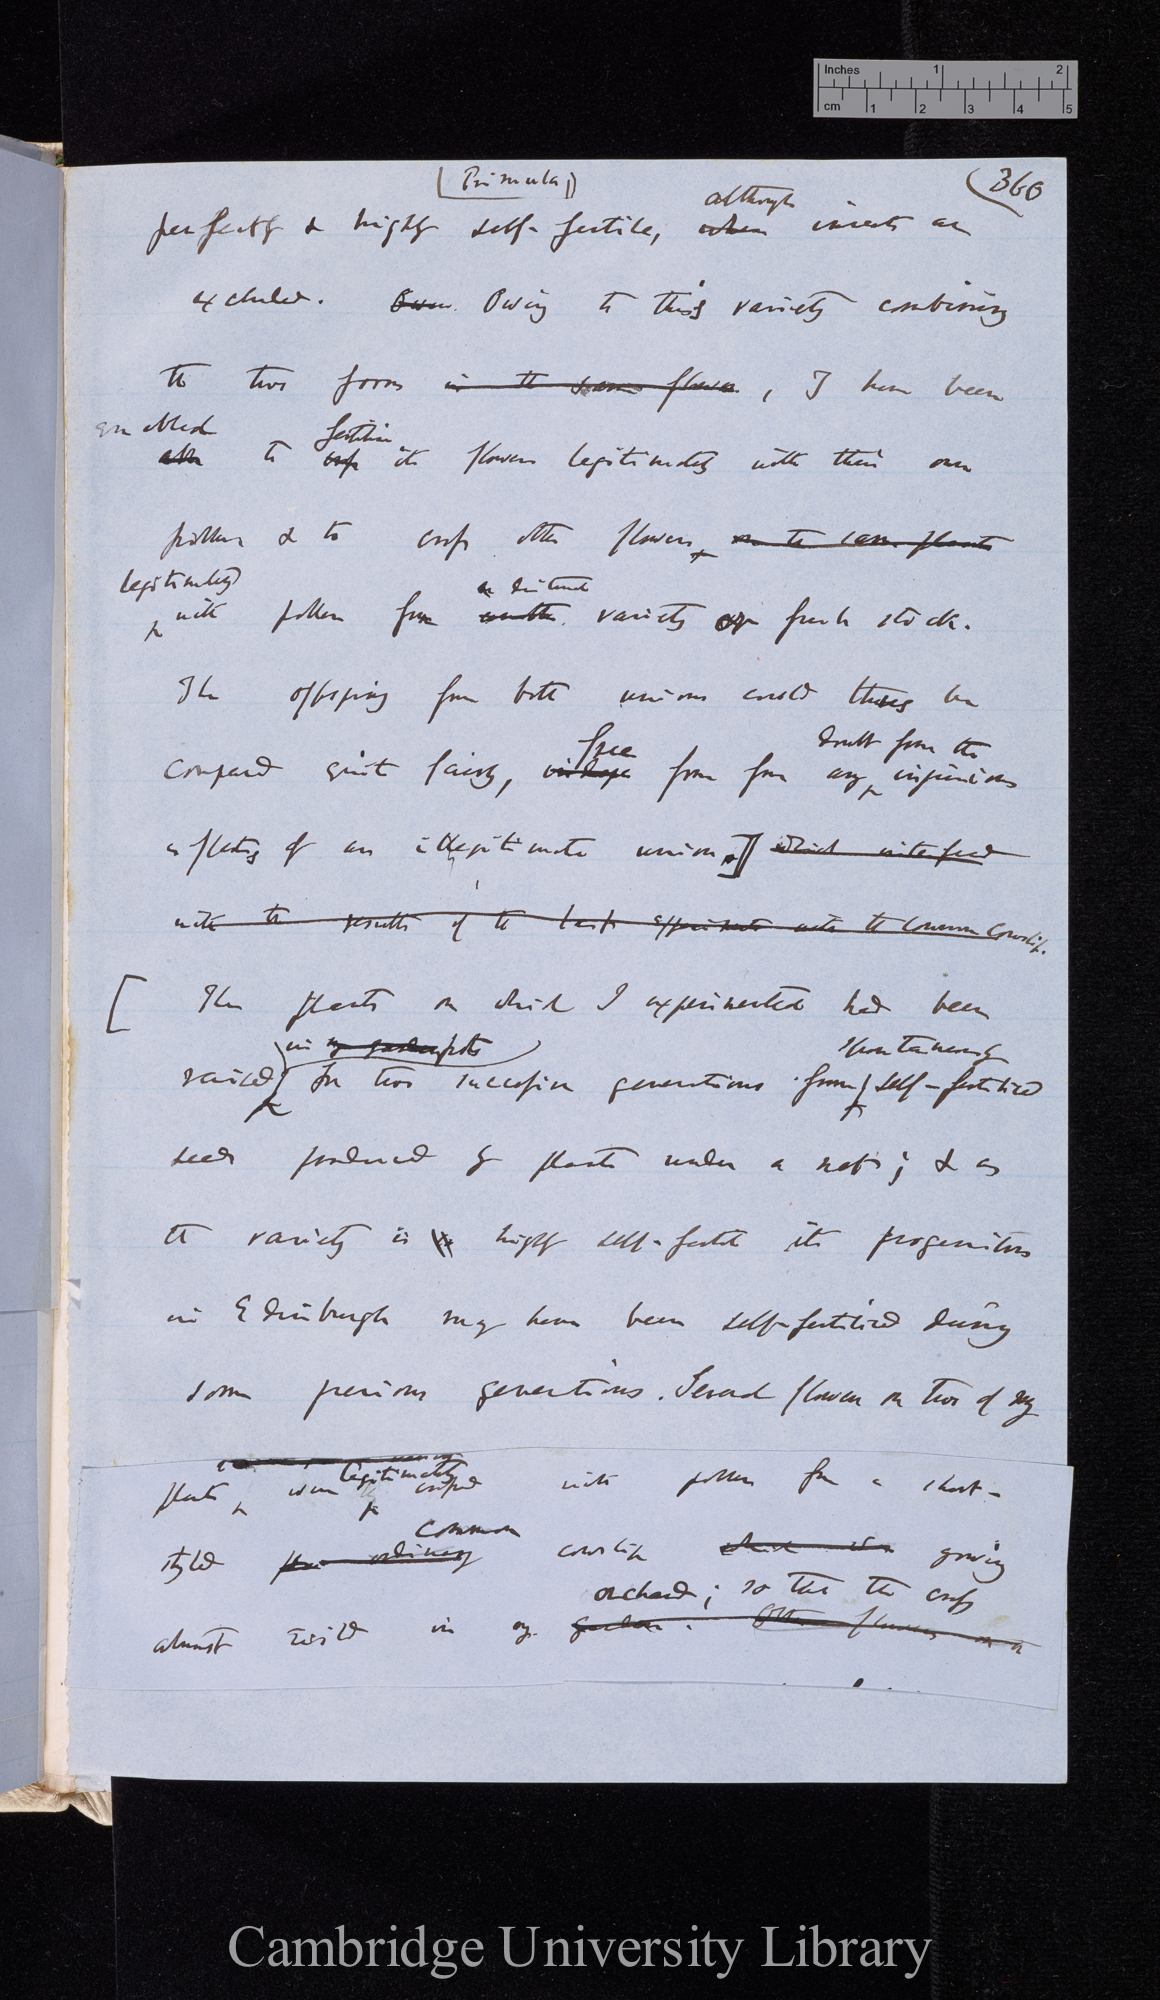 Inches 1 2
cm 1 2 3 4 5
(Primula)
360
although
perfectly & highly self-fertile, when insects are
excluded. Owing to this variety combining
the two forms in the same flower, I have been
enabled fertilise
able to cross its flowers legitimately with their own
pollen & to cross other flowers on the same plants
legitimately a distinct
with pollen from another variety or fresh stock.
The offspring from both unions could thus be
free doubt from the
compared quite fairly, from from any injurious
effects of an illegitimate union.] which interfered
with the results of the last experiments with the common Cowslip.
[The plants on which I experimented had been
in my garden pots spontaneously
raised for two successive generations from self-fertilised
seeds produced by plants under a net; & as
the variety is highly self-fertile its progenitors
in Edinburgh may have been self-fertilised during
some previous generations. Several flowers on two of my
legitimately
plants were crossed with pollen from a short-
common
styled ordinary cowslip which was growing
orchard; so that the cross
almost wild in my garden. Other flowers on
Cambridge University Library